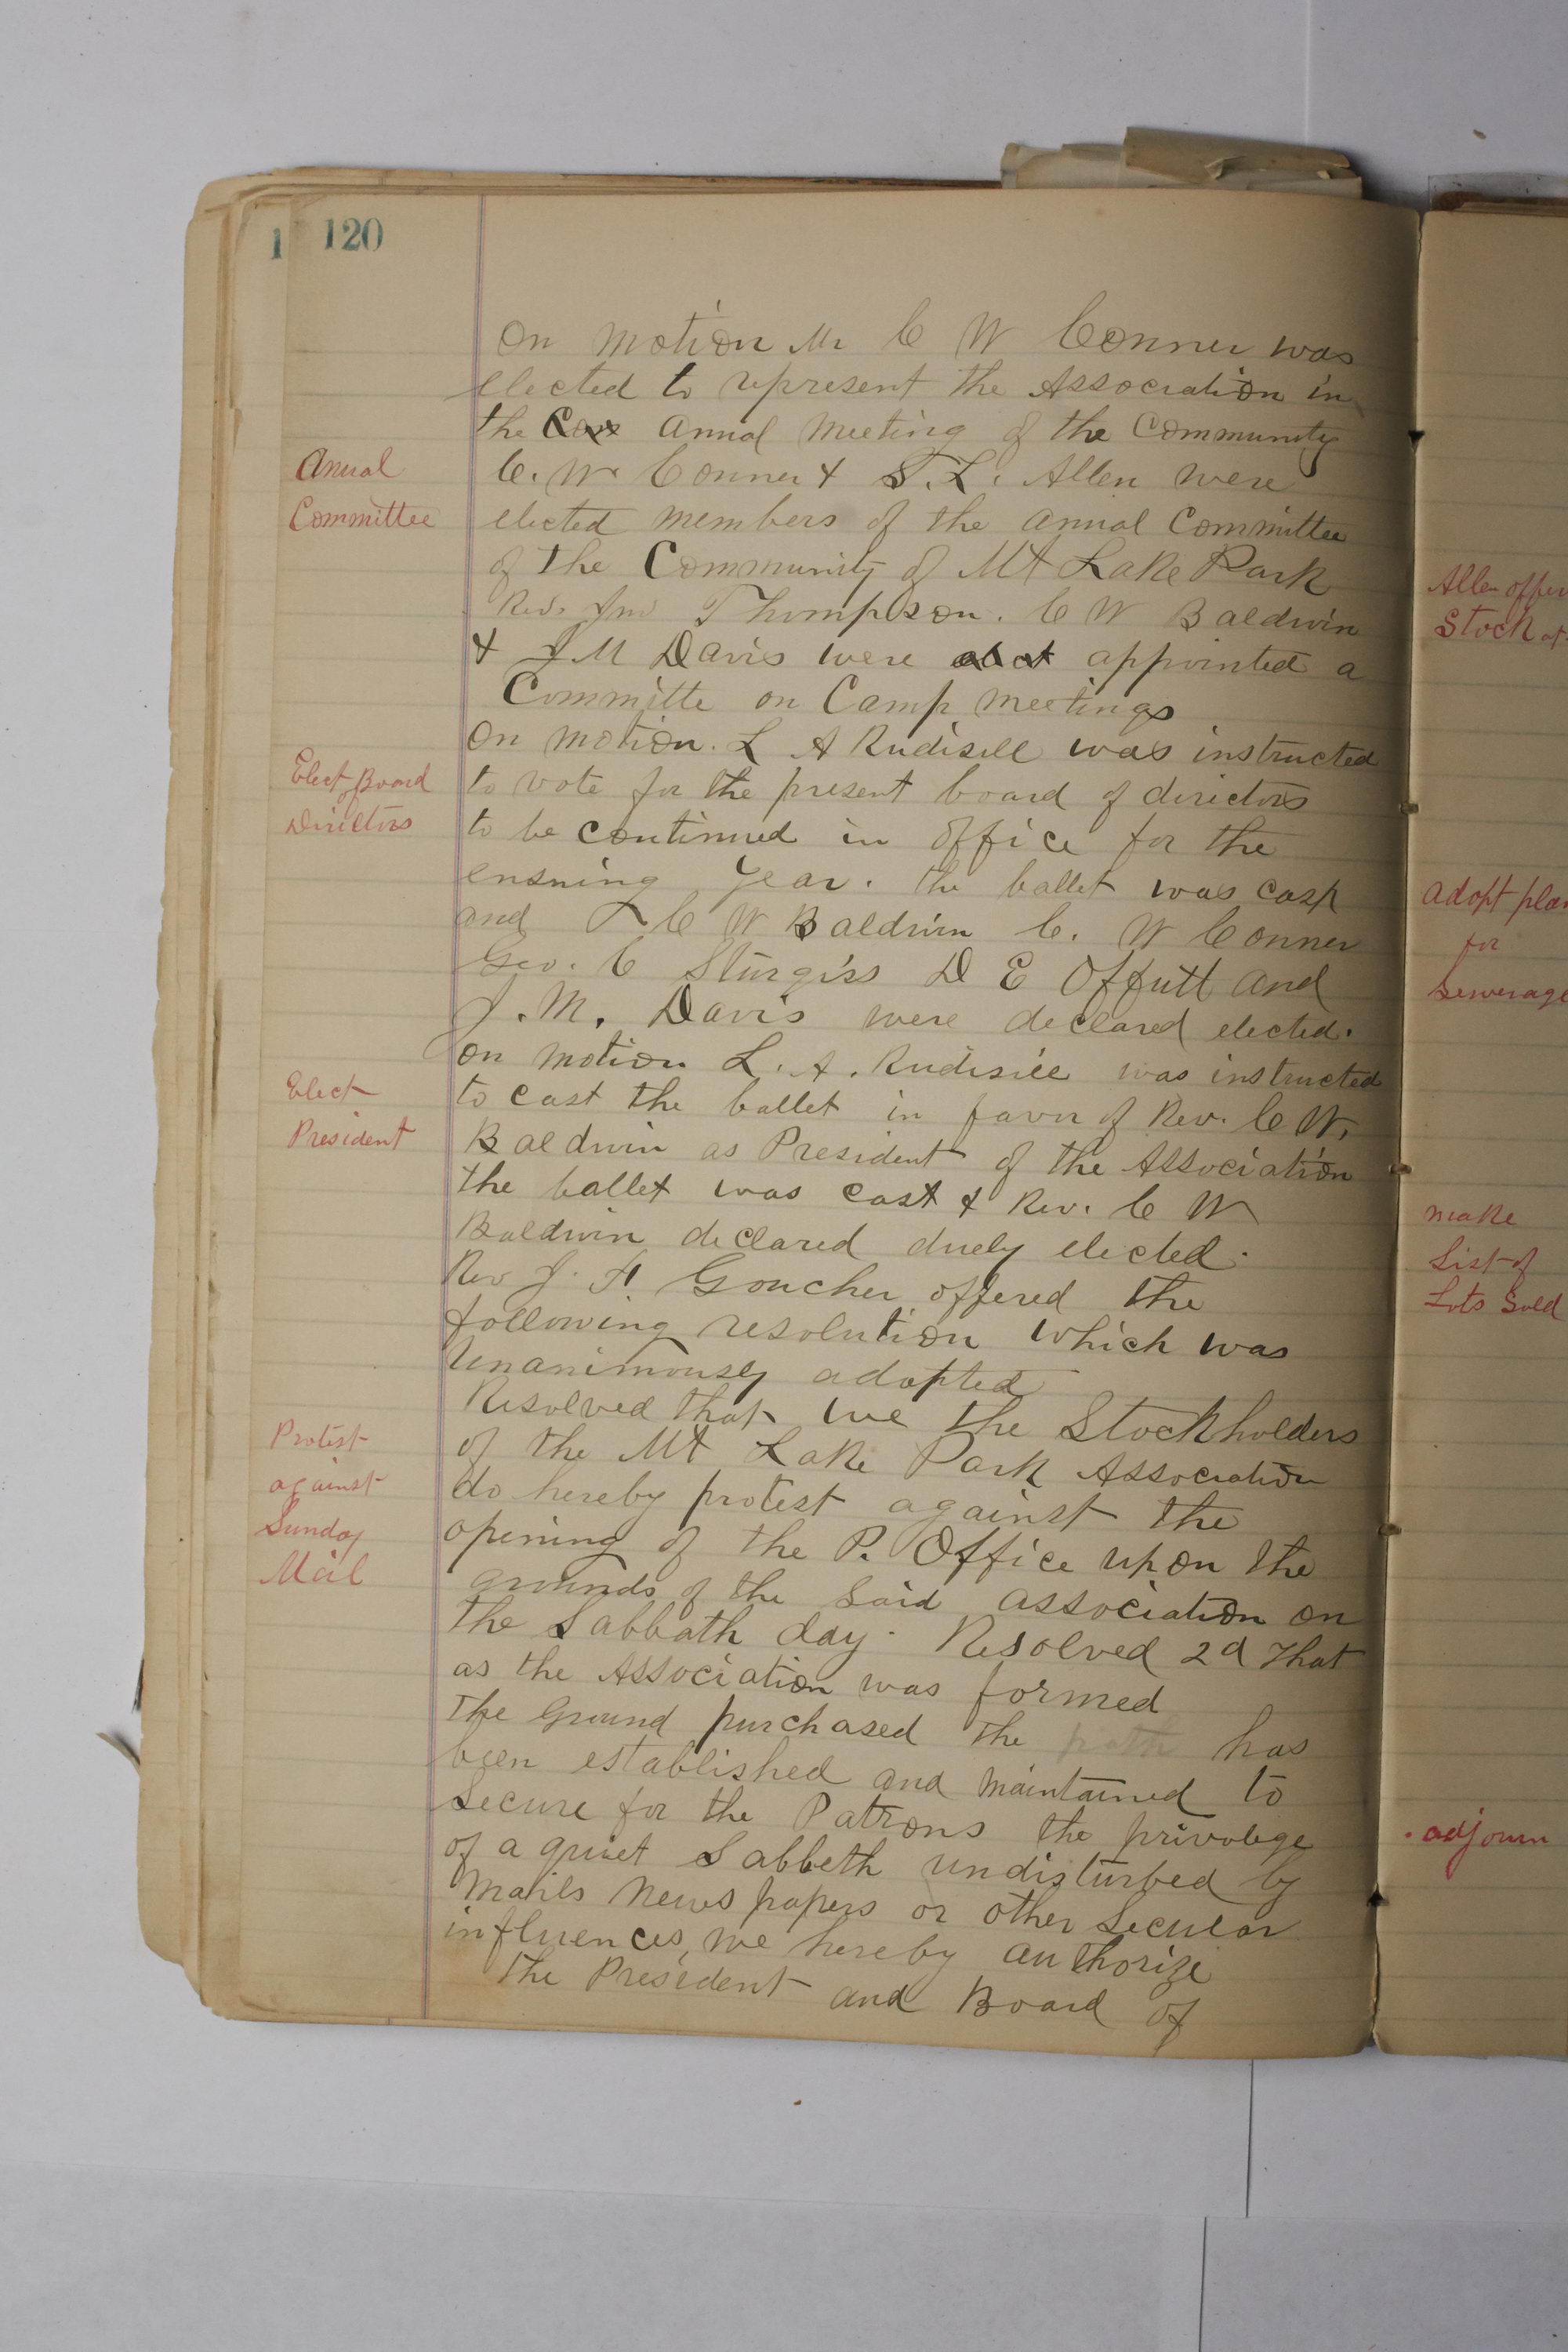 120
On motion Mr C W Conner was
elected to represent the Association in
the annual meeting of the Community
Annual
C. W. Conner & S. L. Allen were
Committee
elected members of the annual Committee
of the Community of Mt Lake Park
Rev. Jno Thompson. C W Baldwin
& J M Davis were appointed a
Committe on Camp meetings
On motion. L A Rudisill was instructed
Elect Board
of
Directors
to vote for the present board of directors
to be continued in office for the
ensuing year. the ballet was cast
and C W Baldwin C. W Conner
Geo. C Sturgiss D E Offutt and
J. M. Davis were declared elected.
on motion L. A. Rudisill was instructed
Elect
President
to cast the ballet in favor of Rev. C W.
Baldwin as President of the Association
the ballet was cast & Rev. C W
Baldwin declared duely elected.
Rev J. F. Goucher offered the
following resolution which was
unanimously adopted
Resolved that we the Stockholders
Protest
against
Sunday
Mail
of the Mt Lake Park Association
do hereby protest against the
opening of the P. Office upon the
grounds of the said association on
the Sabbath day. Resolved 2d that
as the Association was formed
the Ground purchased the has
been established and maintained to
Secure for the Patrons the privolege
of a quiet Sabbeth undisturbed by
mails news papers or other Secular
influences, we hereby authorize
the President and Board of
Allen offer
Stock
adopt plan
for
Sewerage
make
List of
Lots Sold
adjourn